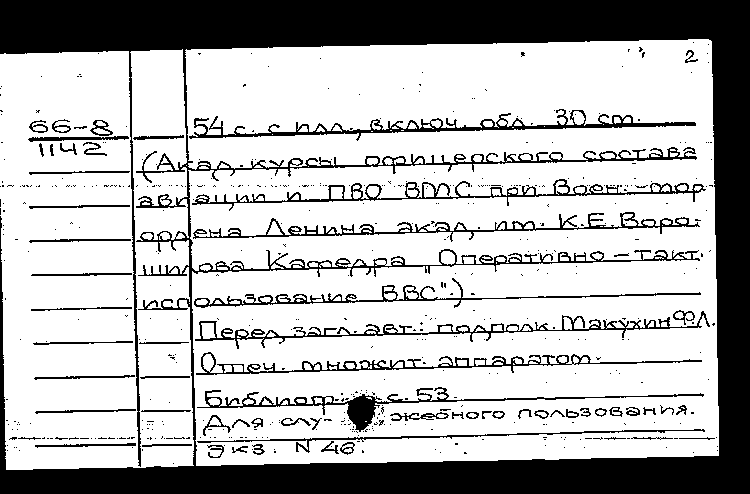 2
66-8
1142
54 с. с илл., включ. обл. 30 см.
(Акад. курсы офицерского состава
авиации и ПВО ВМС при Воен.-мор
ордена Ленина акад. им. К.Е. Воро-
шилова Кафедра "Оперативно-такт.
использование ВВС".).
Перед загл. авт.: подполк. Макухин Ф.Л.
Отпеч. множит. аппаратом.
Библиогр. с. 53
Для слу- жебного пользования.
Экз. N 46.